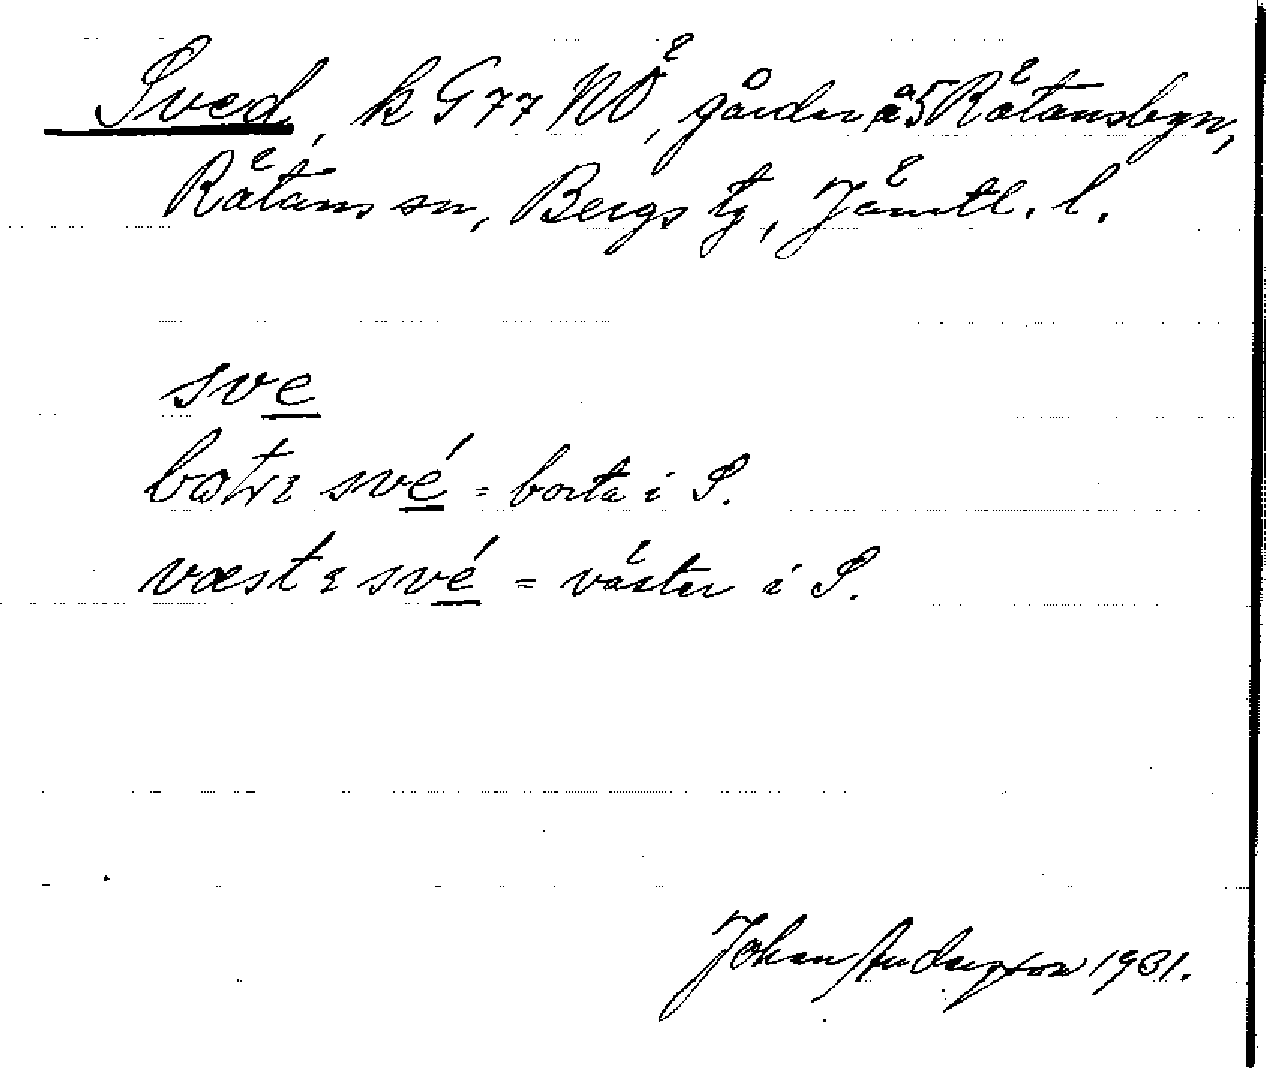 Sved, k G 77 NÖ, gårdar å 5 Rätansbyn,
Rätans sn, Bergs tg, Jämtl. l.
sve
své = borta i S.
væst i své = väster i S.
Johan Anderzson 1931.